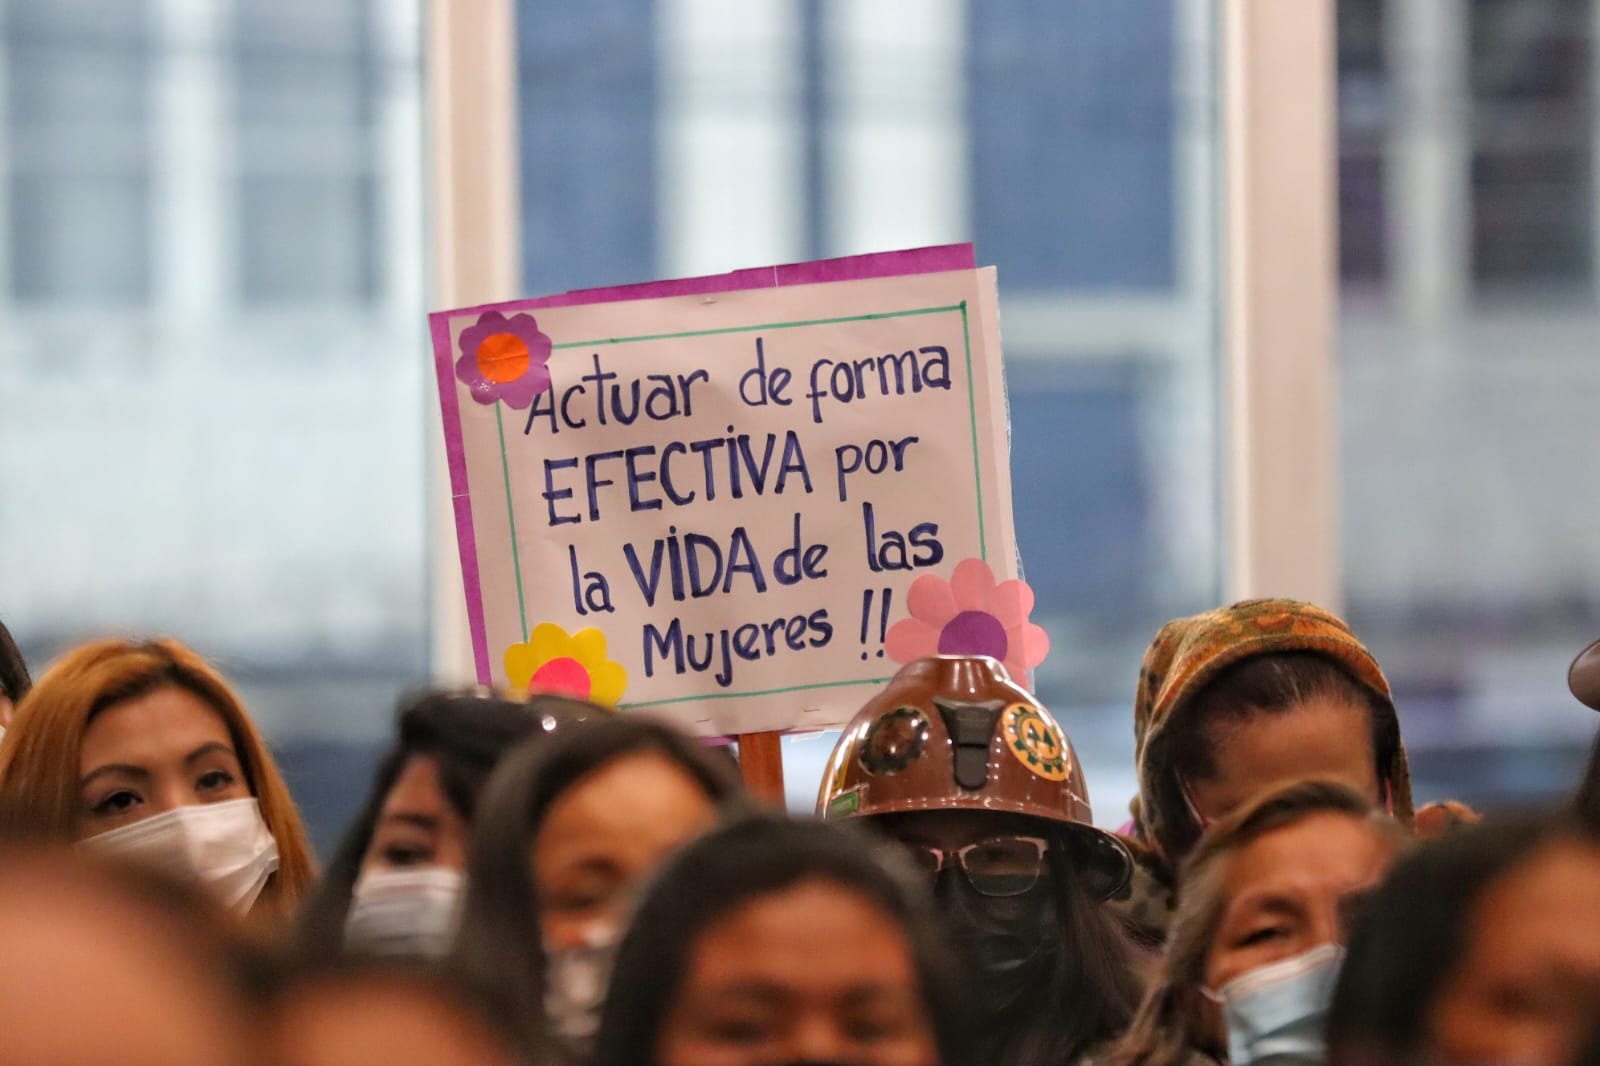 Actuar de forma
EFECTIVA por
la VIDA de las
Mujeres !!